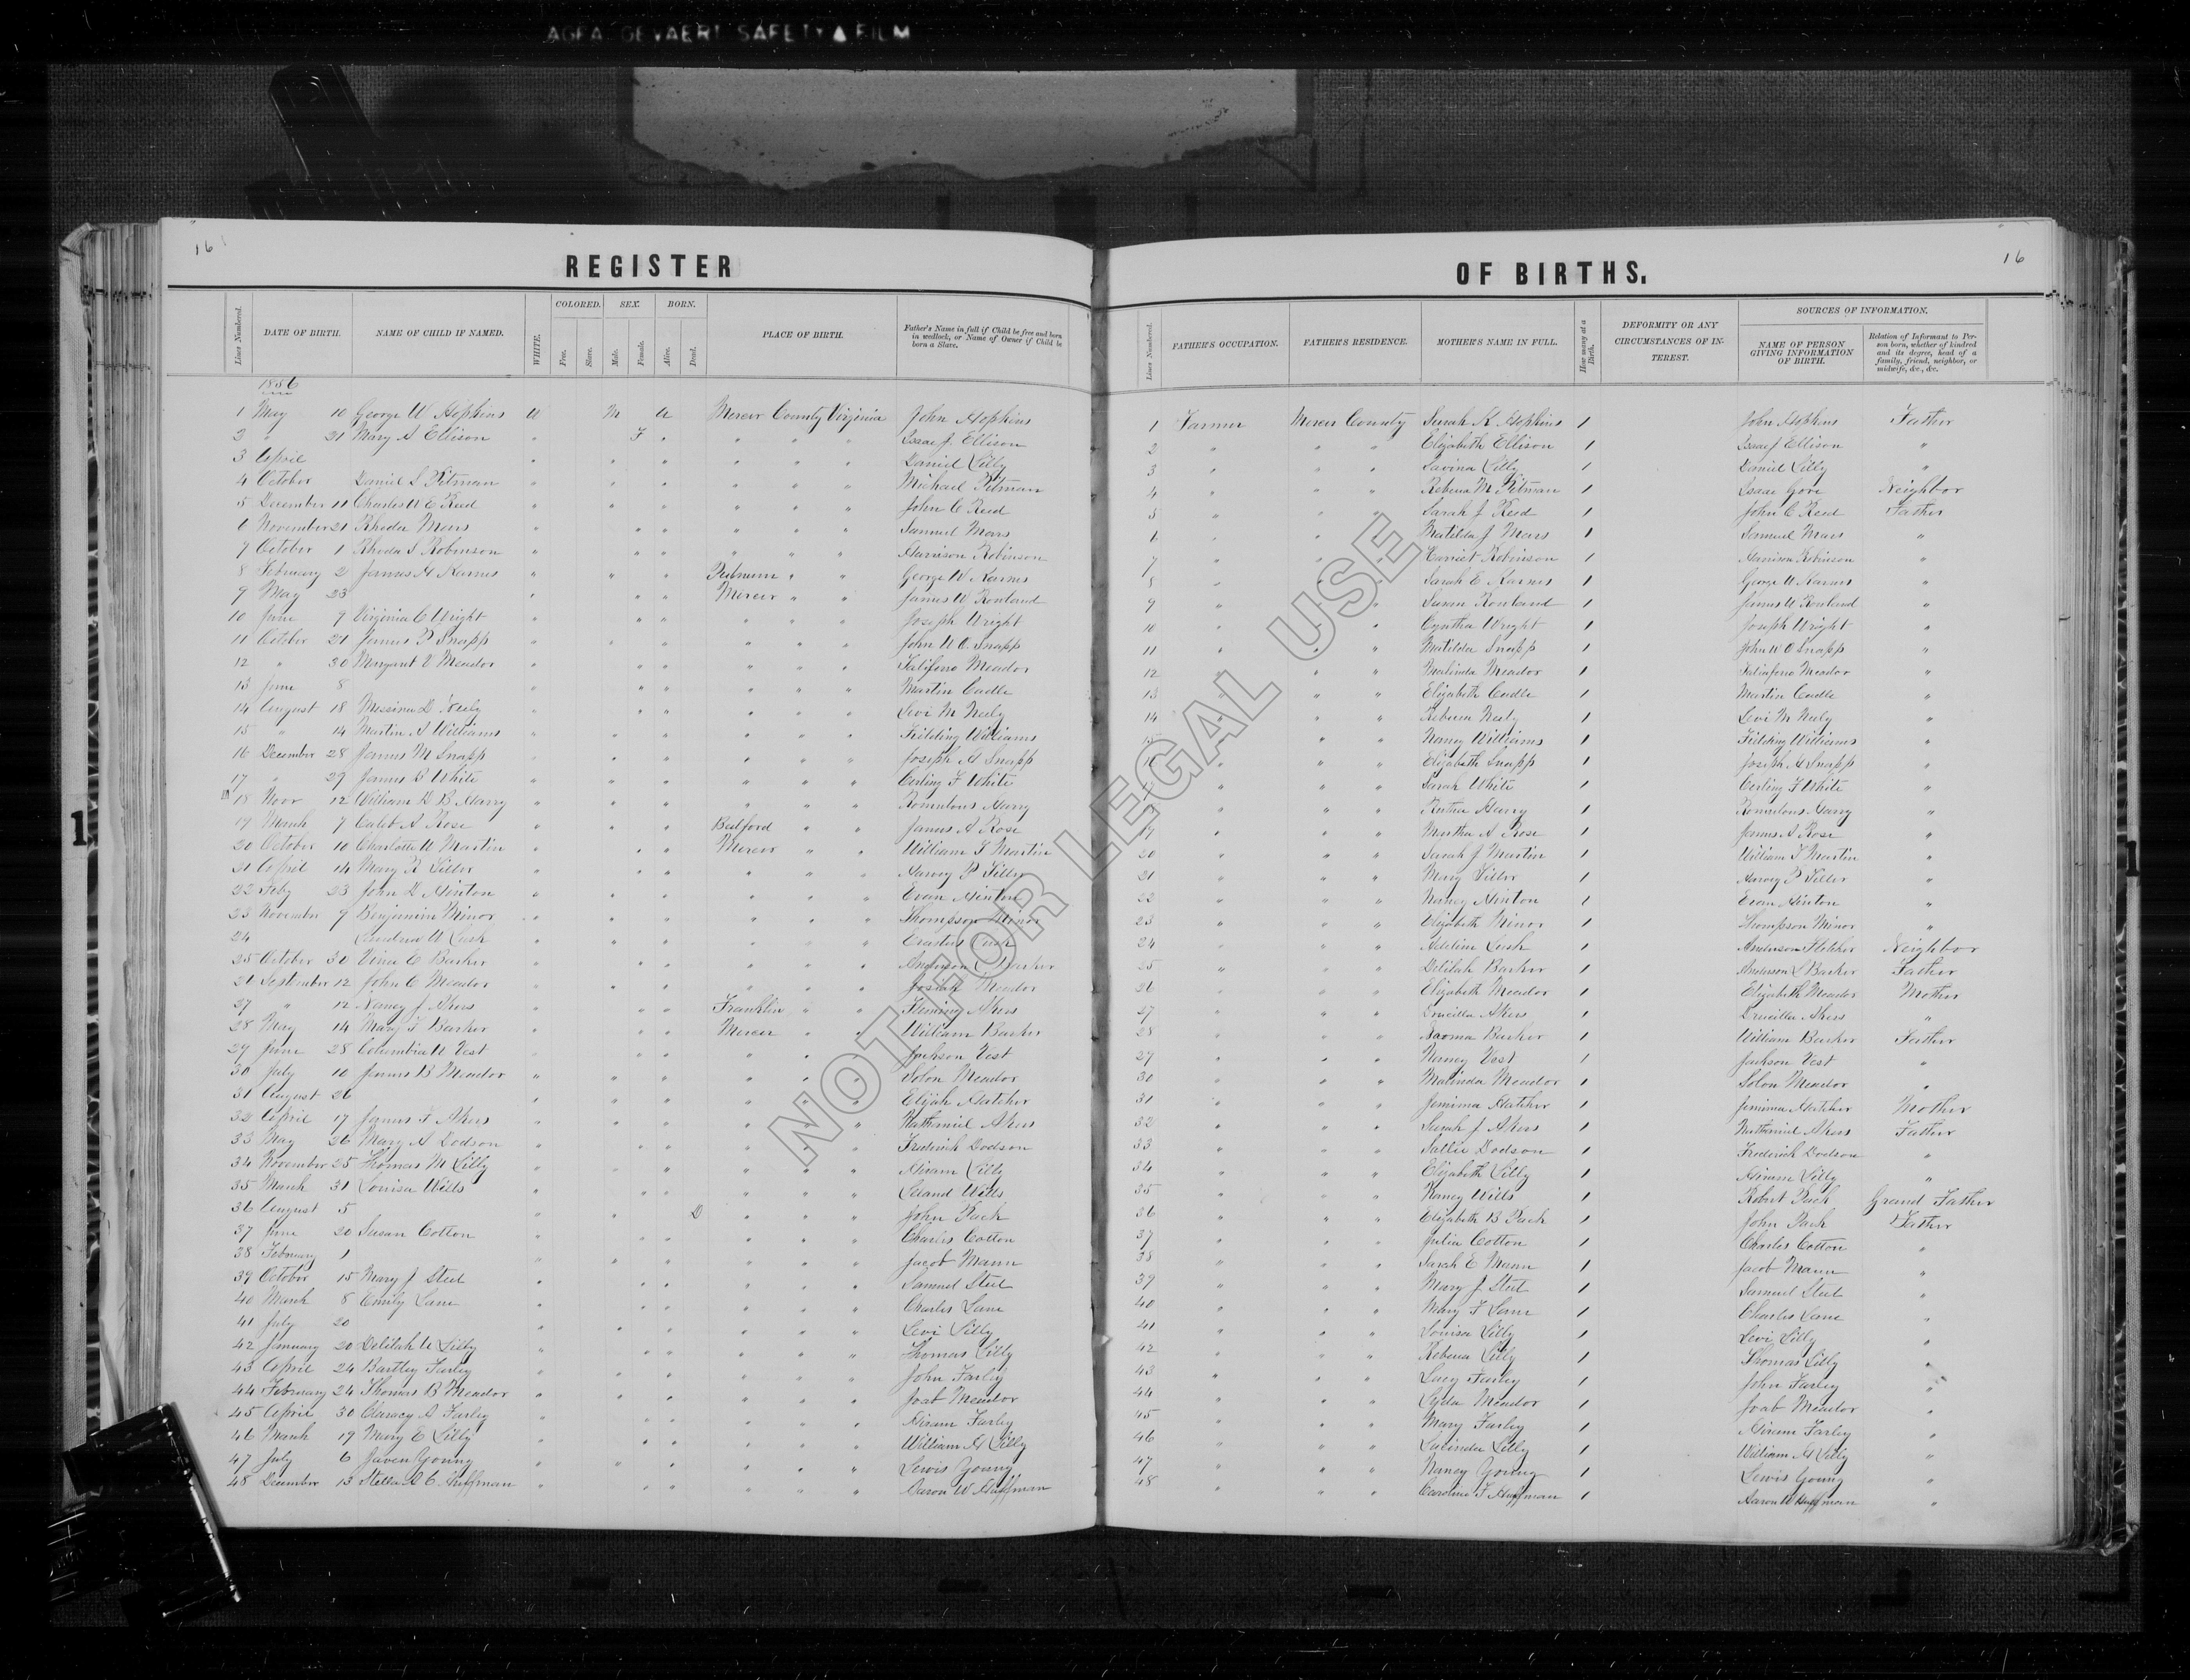 AGFA GEVAERT SAFETY ▲ FILM
16
REGISTER
OF BIRTHS.
16
Lines Numbered. DATE OF BIRTH. NAME OF CHILD IF NAMED. WHITE. COLORED. Free. Slave. SEX. Male. Female. BORN. Alive. Dead. PLACE OF BIRTH. Father's Name in full if Child be free and born in wedlock, or Name of Owner if Child be born a Slave.
Lines Numbered. FATHER'S OCCUPATION. FATHER'S RESIDENCE. MOTHER'S NAME IN FULL. How many at a Birth. DEFORMITY OR ANY CIRCUMSTANCES OF INTEREST. SOURCES OF INFORMATION. NAME OF PERSON GIVING INFORMATION OF BIRTH. Relation of Informant to Person born, whether of kindred and its degree, head of a family, friend, neighbor, or midwife, &c., &c.
1856
1 May 10 George W Hopkins W M A Mercer County Virginia John Hopkins 1 Farmer Mercer County Sarah K Hopkins 1 John Hopkins Father
2 " 31 Mary A Ellison " F " " " " Isaac J. Ellison 2 " " " Elizabeth Ellison 1 Isaac J Ellison "
3 April " " " " " " Daniel Lilly 3 " " " Lavina Lilly 1 Daniel Lilly "
4 October Daniel S Pitman " " " " " " Michael Pitman 4 " " " Rebecca M Pitman 1 Isaac Gore Neighbor
5 December 11 Charles W E Reed " " " " " " John C Reed 5 " " Sarah J Reed 1 John C Reed Father
6 November 21 Rhoda Mars " " " " " " Samuel Mars 6 " " Matilda J Mars 1 Samuel Mars "
7 October 1 Rhoda S Robinson " " " " " " Harrison Robinson 7 " Harriet Robinson 1 Harrison Robinson "
8 February 2 James H Karnes " " " Putnam " " George W Karnes 8 " Sarah E Karnes 1 George W Karnes "
9 May 23 " " " Mercer " " James W Rowland 9 " " Susan Rowland 1 James W Rowland "
10 June 9 Virginia C Wright " " " " " " Joseph Wright 10 " " Cynthia Wright 1 Joseph Wright "
11 October 21 James P Snapp " " " " " " John W O. Snapp 11 " " Matilda Snapp 1 John W O Snapp "
12 " 30 Margaret V Meador " " " " " " Taliferro Meador 12 " " " Malinda Meador 1 Taliaferro Meador "
13 June 8 " " " " " " Martin Cadle 13 " " " Elizabeth Cadle 1 Martin Cadle "
14 August 18 D Neely " " " " " " Levi M Neely 14 " " Rebecca Neely 1 Levi M Neely "
15 " 14 Martin A Williams " " " " " " Fielding Williams 15 " " Nancy Williams 1 Fielding Williams "
16 December 28 James M Snapp " " " " " " Joseph H Snapp " " Elizabeth Snapp 1 Joseph H Snapp "
17 " 29 James B White " " " " " " F White " " Sarah White 1 F White "
18 Novr 12 William D B Harry " " " " " " Romulous Harry " " Harry 1 Romulous Harry "
19 March 7 Caleb A Rose " " " Bedford " " James A Rose 19 " " " Martha A Rose 1 James A Rose "
20 October 10 Charlotte W Martin " " " Mercer " " William T Martin 20 " " " Sarah J Martin 1 William T Martin "
21 April 14 Mary R Siller " " " " " " Harvey P Siller 21 " " " Mary Siller 1 Harvey P Siller "
22 Feby 23 John D Hinton " " " " " " Evan Hinton 22 " " " Nancy Hinton 1 Evan Hinton "
23 November 9 Benjamin Minor " " " " " " Thompson Minor 23 " " " Elizabeth Minor 1 Thompson Minor "
24 W Lush " " " " " " Erastus Lush 24 " " " Adeline Lush 1 Anderson Fletcher Neighbor
25 October 30 C Barker " " " " " " Anderson L Barker 25 " " " Delilah Barker 1 Anderson L Barker Father
26 September 12 John C Meador " " " " " " Josiah Meador 26 " " " Elizabeth Meador 1 Elizabeth Meador Mother
27 " 12 Nancy J Akers " " " Franklin " " Fleming Akers 27 " " " Drucilla Akers 1 Drucilla Akers "
28 May 14 Mary F Barker " " " Mercer " " William Barker 28 " " " Naoma Barker 1 William Barker Father
29 June 28 Columbia W Vest " " " " " Jackson Vest 29 " " " Nancy Vest 1 Jackson Vest "
30 July 10 James B Meador " " " " " " Solon Meador 30 " " " Malinda Meador 1 Solon Meador "
31 August 26 " " " " " " Elijah Hatcher 31 " " " Jemima Hatcher 1 Jemima Hatcher Mother
32 April 17 James F Akers " " " " " " Nathaniel Akers 32 " " " Sarah J Akers 1 Nathaniel Akers Father
33 May 26 Mary A Dodson " " " " " " Frederick Dodson 33 " " " Sallie Dodson 1 Frederick Dodson "
34 November 25 Thomas M Lilly " " " " " " Hiram Lilly 34 " " " Elizabeth Lilly 1 Hiram Lilly "
35 March 31 Louisa Wills " " " " " " Leland Wills 35 " " " Nancy Wills 1 Robert Pack Grand Father
36 August 5 " " D " " " John Pack 36 " " " Elizabeth B Pack 1 John Pack Father
37 June 20 Susan Cotton " " " " " " Charles Cotton 37 " " " Julia Cotton 1 Charles Cotton "
38 February 1 " " " " " " Jacob Mann 38 " " " Sarah E Mann 1 Jacob Mann "
39 October 15 Mary J Steel " " " " " " Samuel Steel 39 " " " Mary J Steel 1 Samuel Steel "
40 March 8 Emily Lane " " " " " " Charles Lane 40 " " " Mary F Lane 1 Charles Lane "
41 July 20 " " " " " " Levi Lilly 41 " " " Louisa Lilly 1 Levi Lilly "
42 January 20 Delilah A Lilly " " " " " " Thomas Lilly 42 " " " Rebecca Lilly 1 Thomas Lilly "
43 April 24 Bartley Farley " " " " " " John Farley 43 " " " Lucy Farley 1 John Farley "
44 February 24 Thomas B Meador " " " " " " Joab Meador 44 " " " Lydia Meador 1 Joab Meador "
45 April 30 Claracy A Farley " " " " " " Hiram Farley 45 " " " Mary Farley 1 Hiram Farley "
46 March 19 Mary E Lilly " " " " " " William H Lilly 46 " " " Lucinda Lilly 1 William H Lilly "
47 July 6 Young " " " " " " Lewis Young 47 " " " Nancy Young 1 Lewis Young "
48 December 13 Stella A C. Huffman " " " " " " Aaron W Huffman 48 " " " Caroline F Huffman 1 Aaron W Huffman "
NOT FOR LEGAL USE
1
1